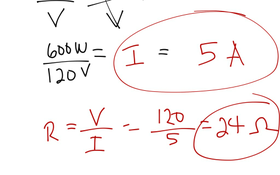 V V
600W / 120V = I = 5 A
R = V / I = 120 / 5 = 24 Ω